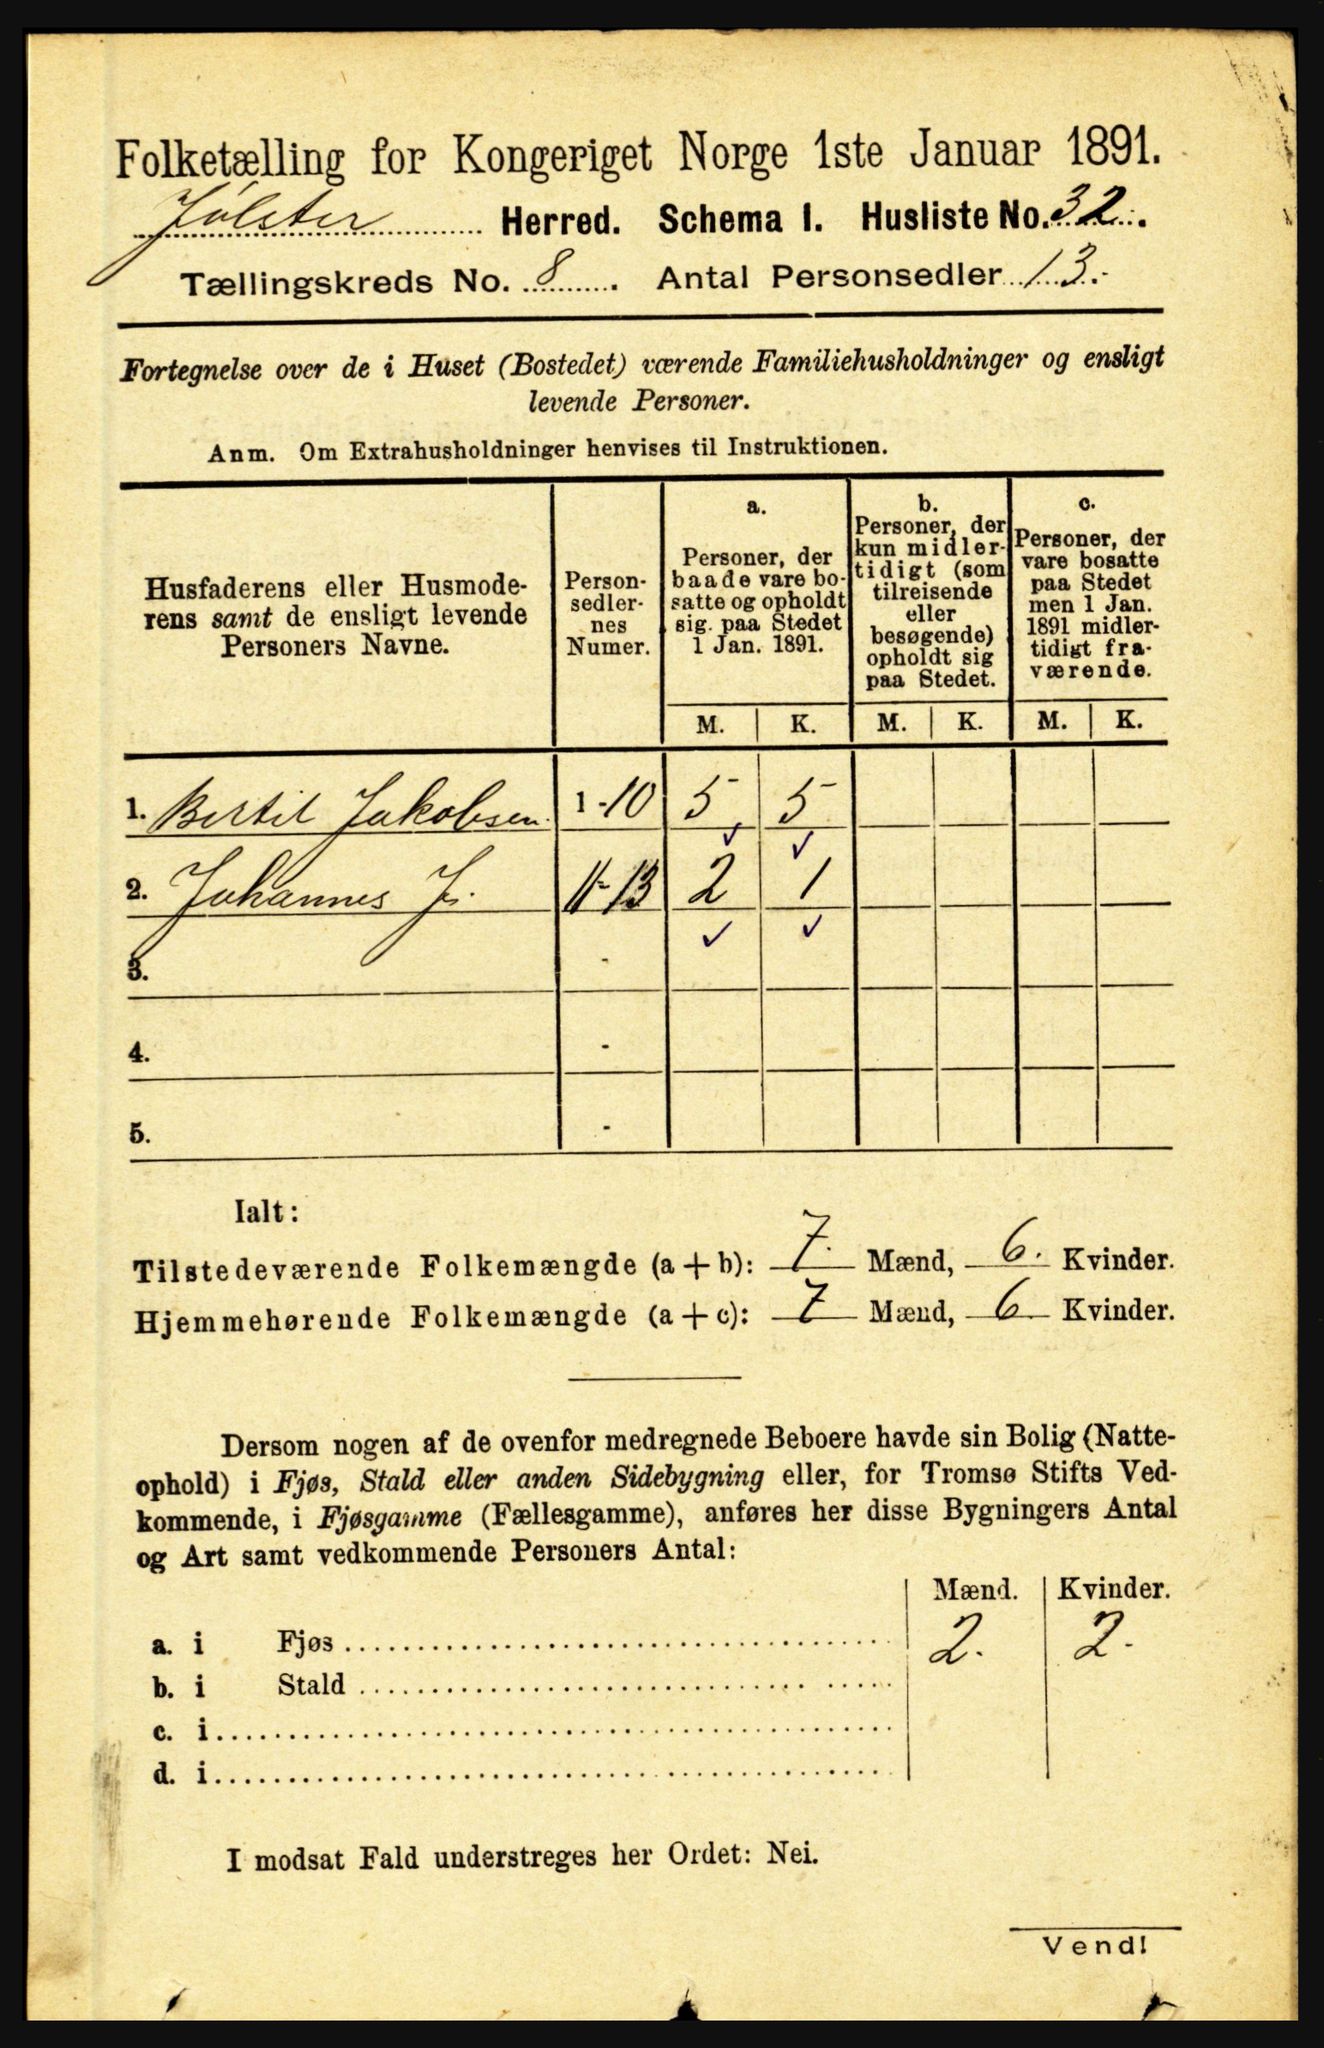 Folketælling for Kongeriget Norge 1ste Januar 1891.
Jølster Herred. Schema I. Husliste No. 32.
Tællingskreds No. 8. Antal Personsedler 13.
Fortegnelse over de i Huset (Bostedet) værende Familiehusholdninger og ensligt
levende Personer.
Anm. Om Extrahusholdninger henvises til Instruktionen.
Husfaderens eller Husmode-
rens samt de ensligt levende
Personers Navne.
Person-
sedler-
nes
Numer.
a.
Personer, der
baade vare bo-
satte og opholdt
sig paa Stedet
1 Jan. 1891.
b.
Personer, der
kun midler-
tidigt (som
tilreisende
eller
besøgende)
opholdt sig
paa Stedet.
c.
Personer, der
vare bosatte
paa Stedet
men 1 Jan.
1891 midler-
tidigt fra-
værende.
M. K. M. K. M. K.
1. Bertil Jakobsen 1-10 5 5
2. Johannes J. 11-13 2 1
3. -
4. -
5. -
Ialt:
Tilstedeværende Folkemængde (a+b): 7. Mænd, 6. Kvinder.
Hjemmehørende Folkemængde (a+c): 7 Mænd, 6 Kvinder.
Dersom nogen af de ovenfor medregnede Beboere havde sin Bolig (Natte-
ophold) i Fjøs, Stald eller anden Sidebygning eller, for Tromsø Stifts Ved-
kommende, i Fjøsgamme (Fællesgamme), anføres her disse Bygningers Antal
og Art samt vedkommende Personers Antal:
Mænd. Kvinder.
a. i Fjøs 2. 2.
b. i Stald
c. i
d. i
I modsat Fald understreges her Ordet: Nei.
Vend!